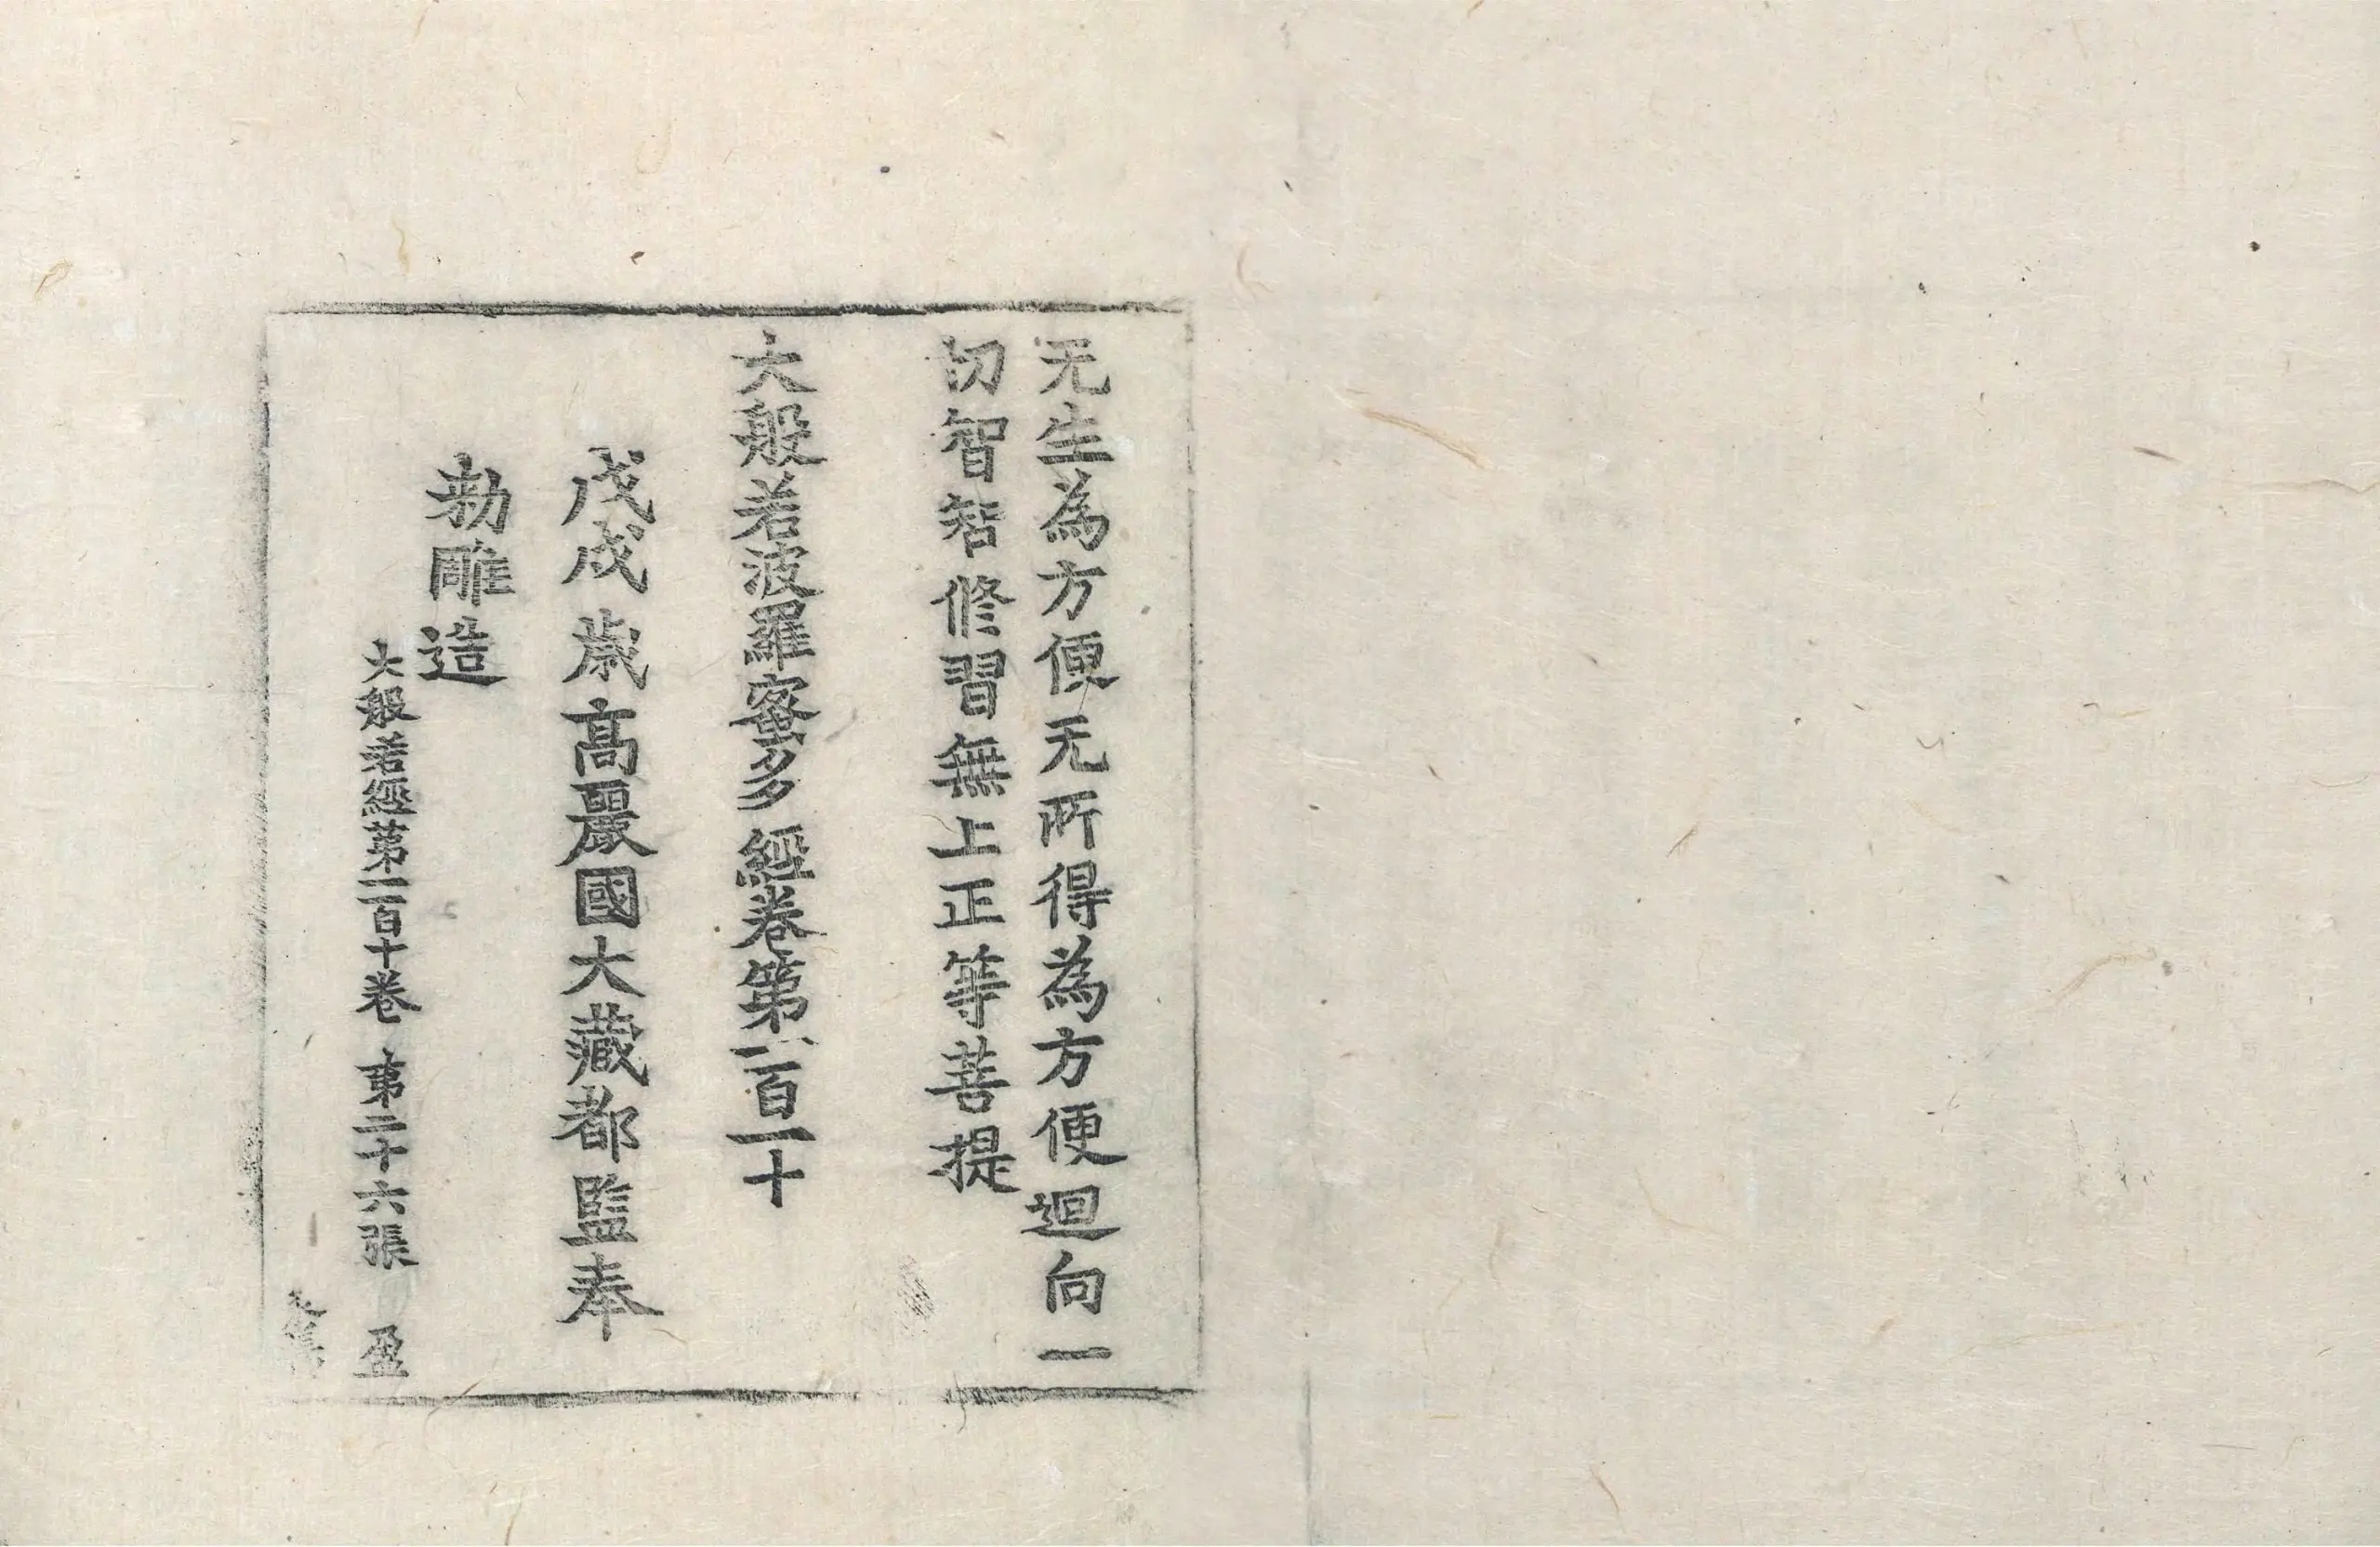 无生為方便无所得為方便迴向一
切智智修習無上正等菩提
大般若波羅蜜多經卷第一百一十
戊戌歲髙麗國大藏都監奉
勑雕造
大般若經第一百十卷 第二十六張 盈